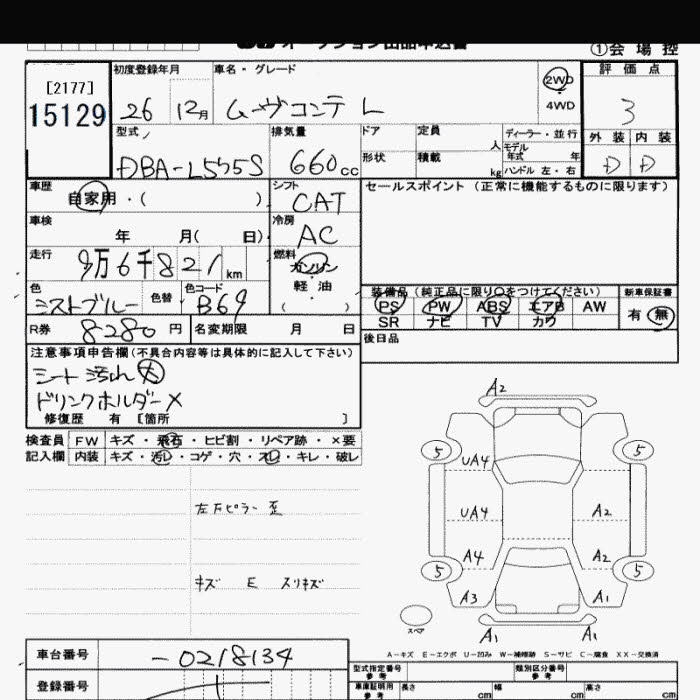 オークション出品申込書
①会場控
[2177]
15129
初度登録年月
26 12月
車名・グレード
ムーヴコンテ L
2WD
4WD
評価点
3
外装 内装
D D
型式
DBA-L575S
排気量
660cc
ドア
形状
定員 人
積載 kg
ディーラー・並行
モデル年式 年
ハンドル 左・右
車歴
自家用・( )
シフト
CAT
セールスポイント(正常に機能するものに限ります)
車検
年 月( 日)
冷房
AC
走行
9万6千821km
燃料
ガソリン
軽油
( )
色
ミストブルー
色替
色コード
B69
装備品(純正品に限り〇をつけてください)
PS PW ABS エアB AW
SR ナビ TV カワ
新車保証書
有 無
R券 8280円
名変期限 月 日
後日品
注意事項申告欄(不具合内容等は具体的に記入して下さい)
シート汚れ大
ドリンクホルダー×
修復歴 有 [箇所 ]
検査員記入欄
FW キズ・飛石・ヒビ割・リペア跡・×要
内装 キズ・汚レ・コゲ・穴・スレ・キレ・破レ
左Fピラー 歪
キズ E スリキズ
A2
5 5
UA4
UA4 A2
A4 A2
5 5
A3 A1
スペア
A1 A1
A-キズ E-エクボ U-凹み W-補修跡 S-サビ C-腐食 XX-交換済
車台番号
-0218134
登録番号
型式指定番号
参考
類別区分番号
参考
車庫証明用
参考
長さ cm
幅 cm
高さ cm